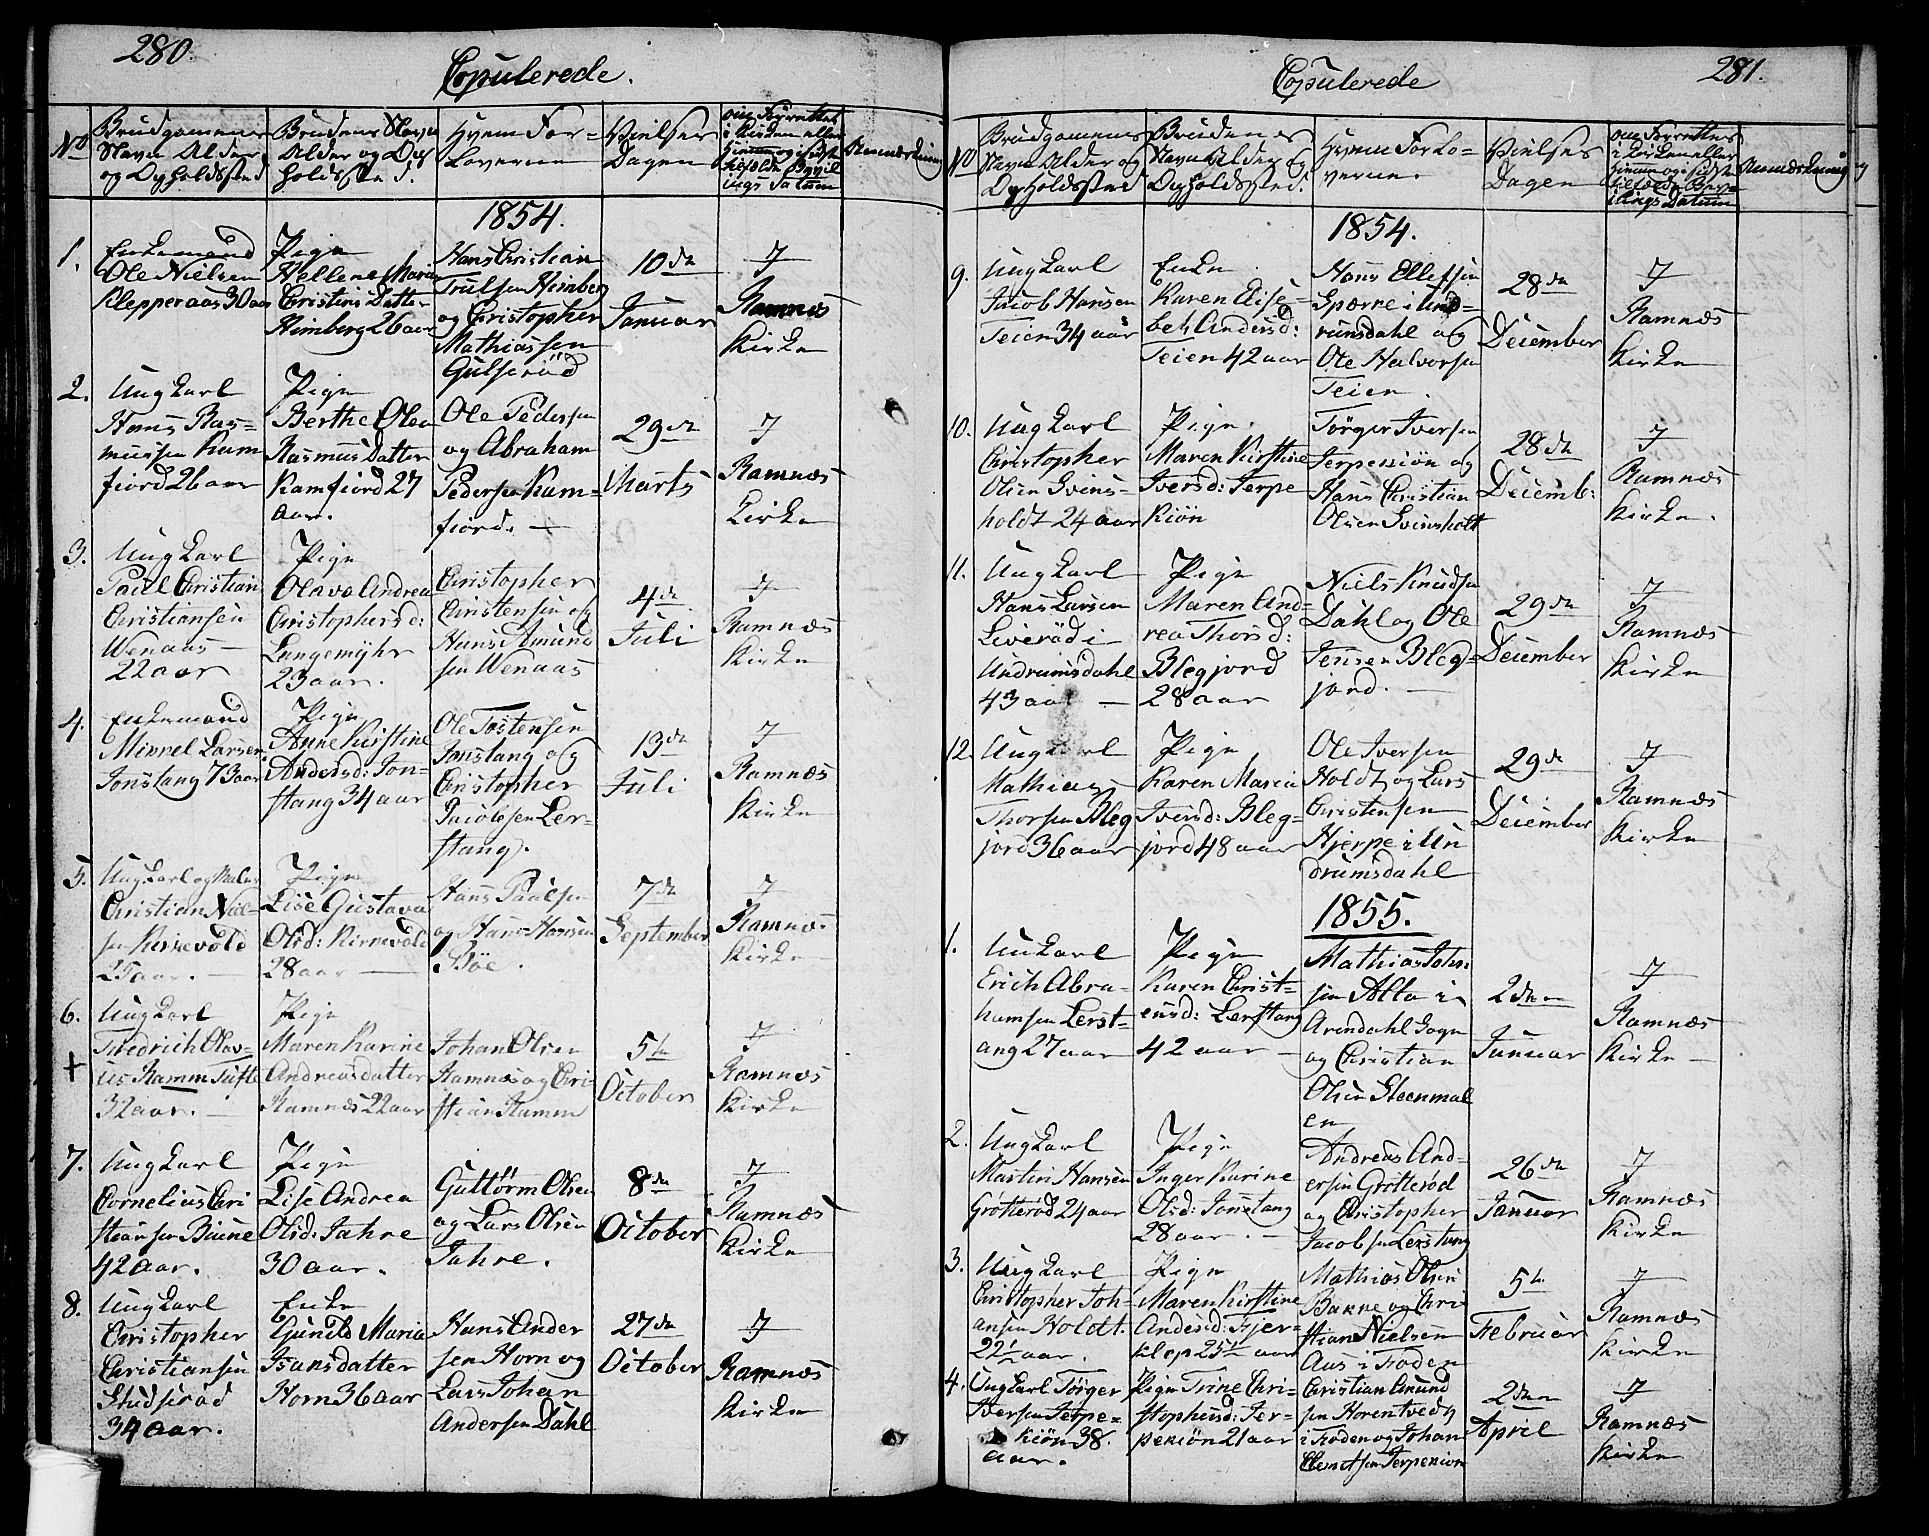 280.
Copulerede.
No
Brudgomens
Navn Alder
og Opholdsted
Brudens Navn
Alder og Op
holdsted.
Hvem For-
loverne
Vielses
Dagen
om Forrettet
i Kirken eller
Hjemme og i sidst
Anmærkning
1854.
1.
Enkemand
Ole Nielsen
Klepperaas 30 aar
Pige
Hellene Marie
Christins Datter
Himberg 26 aar
Hans Christian
Trulsen Himberg
og Christopher
Mathiassen
Gulserød
10de
Januar
I
Ramnæs
Kirke
2.
Ungkarl
Hans Ras-
mussen Kam
fiord 26 aar
Pige
Berthe Olea
Rasmus Datter
Kamfiord 27
aar.
Ole Pedersen
og Abraham
Pedersen Kam-
fiord. —
29de
Marts
I
Ramnæs
Kirke
3.
Ungkarl
Paul Christian
Christiansen
Wenaas —
22 aar
Pige
Olava Andrea
Christophersd:
Langemyhr
23 aar.
Christopher
Christensen og
Hans Amund
sen Wenaas
4de
Juli
I
Ramnæs
Kirke
4.
Enkemand
Minnel Larsen
Jonstang 73 aar
Pige
Anne Kirstine
Andersd: Jon-
stang 34 aar
Ole Tostensen
Jonstang og
Christopher
Jacobsen Ler-
stang.
13de
Juli
I
Ramnæs
Kirke
5.
Ungkarl og
Christian Niel-
sen Kirkevold
25 aar. —
Pige
Lise Gustava
Olsd: Kirkevold
28 aar —
Hans Paulsen
og Hans Hansen
Bøe.
7de
September
I
Ramnæs.
Kirke
6.
+
Ungkarl
Fredrich Olav-
us Ramm Tufte
32 aar. —
Pige
Maren Karine
Andreasdatter
Ramnæs 22 aar
Johan Olsen
Ramnæs og Chri-
stian Ramm
5te
October
I
Ramnæs
Kirke
7.
Ungkarl
Cornelius Chri
stiansen Biune
42 aar.
Pige
Lise Andrea
Olsd: Jahre
30 aar.
Guttorm Olsen
og Lars Olsen
Jahre.
8de
October
I
Ramnæs
Kirke
8.
Ungkarl
Christopher
Christiansen
Studsrød
34 aar.
Enke
Gunild Maria
Isansdatter
Horn 36 aar
Hans Ander
sen Horn og
Lars Johan
Andersen Dahl
27de
October
I
Ramnæs
Kirke
281.
Copulerede
No
Brudgomens
Navn Alder og
Opholdsted
Brudenes
Navn Alder og
Opholdsted.
Hvem Forlo-
verne.
Vielses
Dagen
om Forrettes
i Kirken eller
hjemme og i sidste
tilfælde Bevil-
lings Datum
Anmærkning
1854.
9.
Ungkarl
Jacob Hansen
Teien 34 aar
Enke
Karen Elise-
beth Andersd:
Teien 42 aar
Hans Ellefsen
Sperre i Und-
rumsdahl og
Ole Halvorsen
Teien.
28de
December
I
Ramnæs
Kirke
10.
Ungkarl
Christopher
Olsen Svins-
holdt 24 aar
Pige.
Maren Kirstine
Iversd: Jerpe
kiøn
Tørger Iversen
Jerpekiøn og
Hans Christian
Olsen Svinsholt
28de
Decemb:
I
Ramnæs
Kirke.
11.
Ungkarl
Hans Larsen
Liverød i —
Undrumsdahl
43 aar —
Pige
Maren And-
rea Thorsd:
Blegjord
28 aar
Niels Knudsen
Dahl og Ole
Jensen Bleg-
jord. —
29de
December
I
Ramnæs
Kirke
12.
Ungkarl
Mathias
Thorsen Bleg
jord 36 aar
Pige
Karen Maria
Iversd: Bleg-
jord 48 aar
Ole Iversen
Holdt og Lars
Christensen
Hjerpe i Un
drumsdahl
29de
December
I
Ramnæs
Kirke
1855.
1.
Unkarl
Erich Abra-
hamsen Lerst-
ang 27 aar
Pige
Karen Christ-
ensd: Lerstang
42 aar —
Mathias Joh:
sen Alto i
Arendahl Sogn
og Christian
Olsen Steenmal
en
2den
Januar
I
Ramnæs
Kirke —
2.
Ungkarl
Martin Hansen
Grøtterød 24 aar
Pige
Inger Karine
Olsd: Jonstang
28 aar. —
Andreas And-
ersen Grøtterød
og Christopher
Jacobsen Lerstang
26de
Januar
I
Ramnæs
Kirke
3.
Ungkarl
Christopher Joh-
ansen Holdt.
22½ aar.
Pige
Maren Kirstine
Andersd: Fjer-
klop 25½ aar
Mathias Olsen
Bakke og Chri
stian Nielsen
Aas i Foden
5te
Februar
I
Ramnæs
Kirke
4.
Ungkarl Tørger
Iversen Jerpe-
kiøn 38.
aar.
Pige Trine Chri-
stophersd: Jer-
pekiøn 21 aar
Christian Amund
sen Horentvedt
i Foden og Johan
Clemetsen Jerpekion
2den
April
I
Ramnæs
Kirke